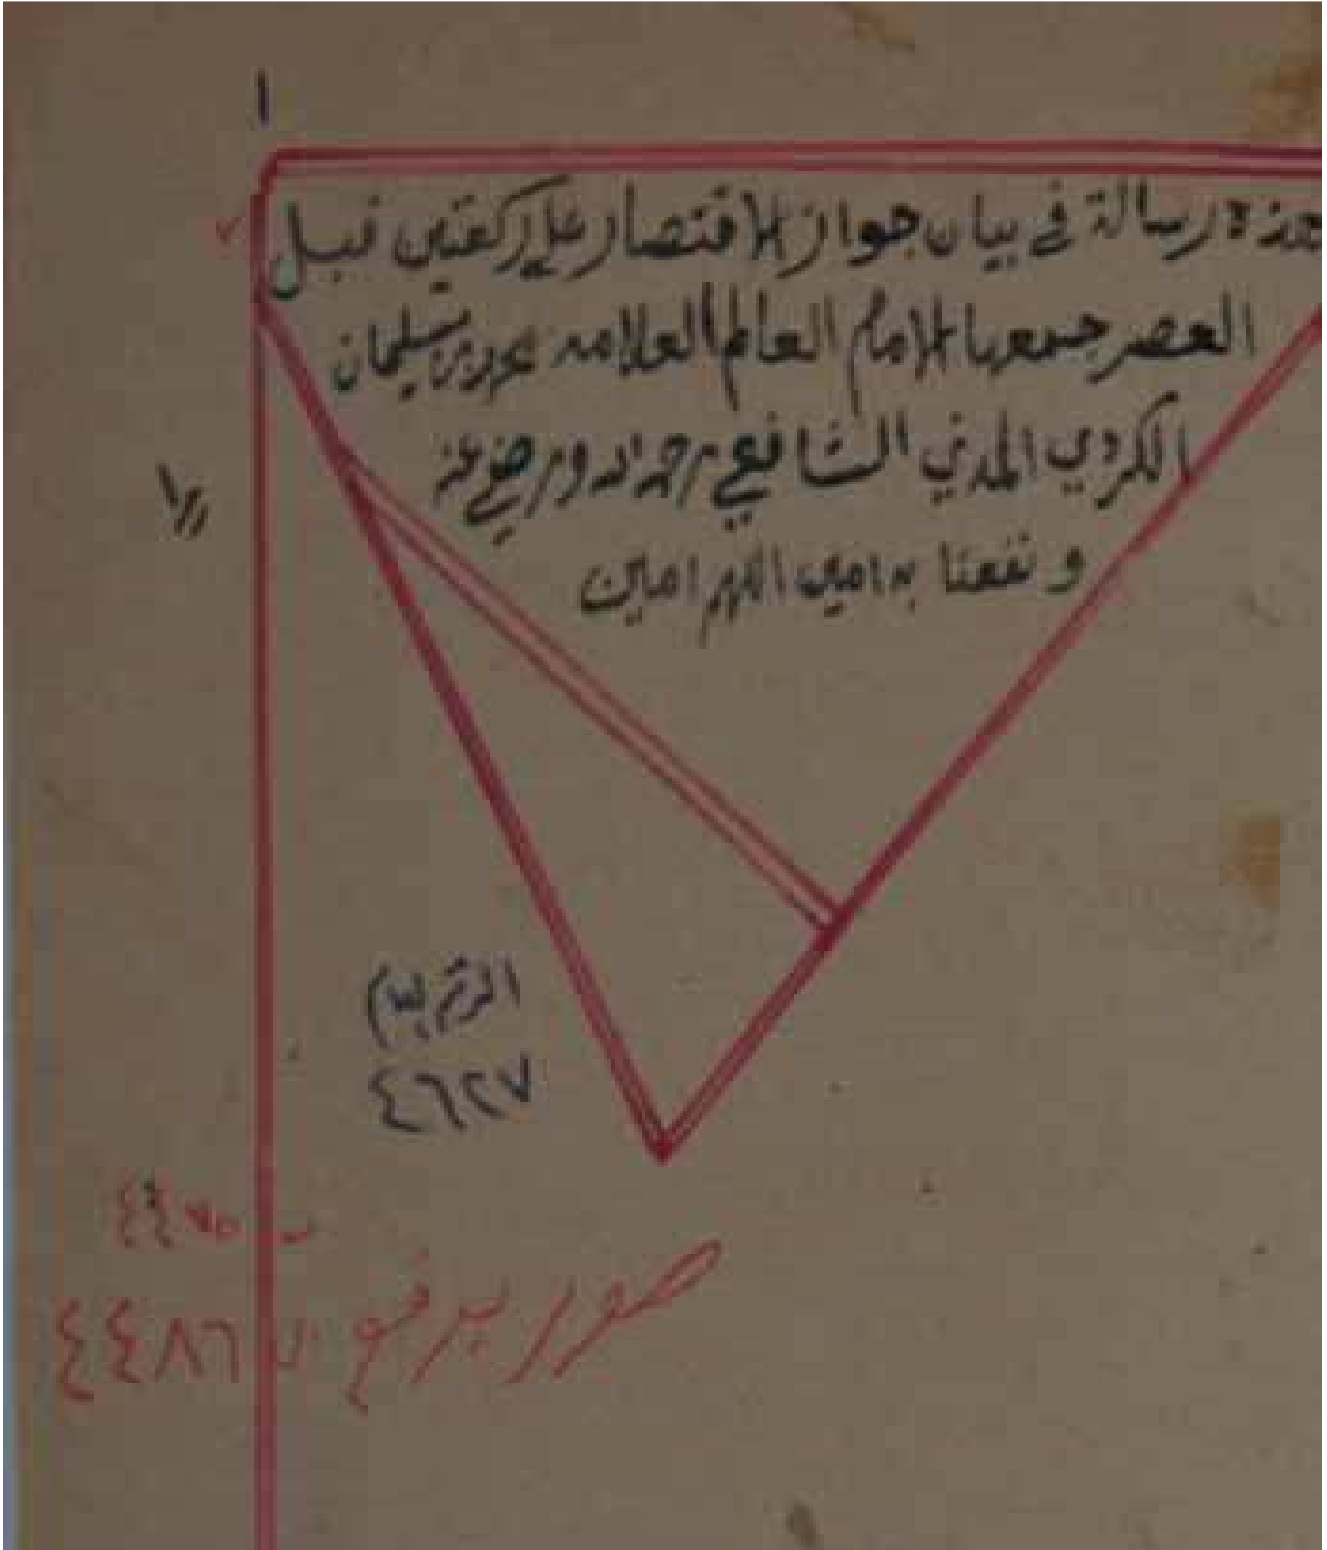 ١
هذه رسالة في بيان جواز الاقتصار على ركعتين قبل
العصر جمعها الامام العالم العلامه محمد بن سليمان
الكردي المدني الشافعي رحمه الله ورضي عنه
ونفعنا به امين اللهم امين
٤٦٢٧
صور برقم
٤٤٨٦